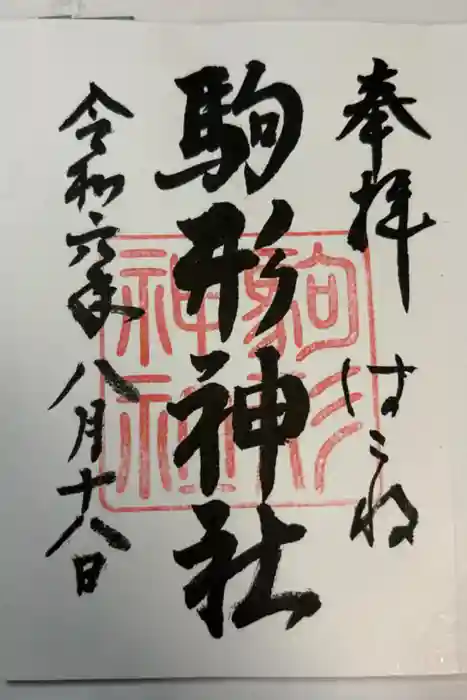 奉拝 はこね
駒形神社
令和六年八月十八日
駒形
神社